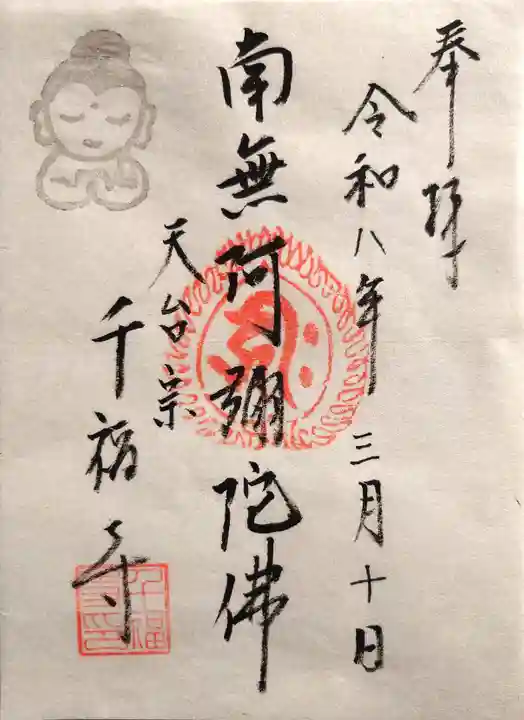 奉拝
令和八年三月十日
南無阿彌陀佛
天台宗
千福寺